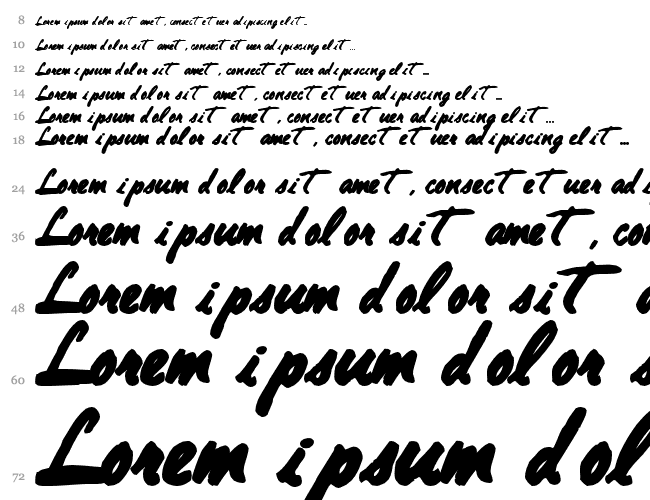 8 Lorem ipsum dolor sit amet , consect et uer adipiscing elit ...
10 Lorem ipsum dolor sit amet , consect et uer adipiscing elit ...
12 Lorem ipsum dolor sit amet , consect et uer adipiscing elit ...
14 Lorem ipsum dolor sit amet , consect et uer adipiscing elit ...
16 Lorem ipsum dolor sit amet , consect et uer adipiscing elit ...
18 Lorem ipsum dolor sit amet , consect et uer adipiscing elit ...
24 Lorem ipsum dolor sit amet , consect et uer ad
36 Lorem ipsum dolor sit amet , con
48 Lorem ipsum dolor sit
60 Lorem ipsum dolor s
72 Lorem ipsum dol